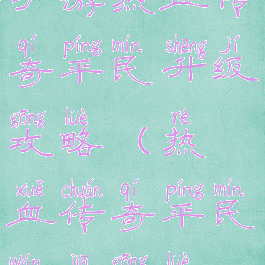 手游热血传
qí píng mín shēng jí
奇平民升级
gōng lüè rè
攻略(热
xuè chuán qí píng mín
血传奇平民